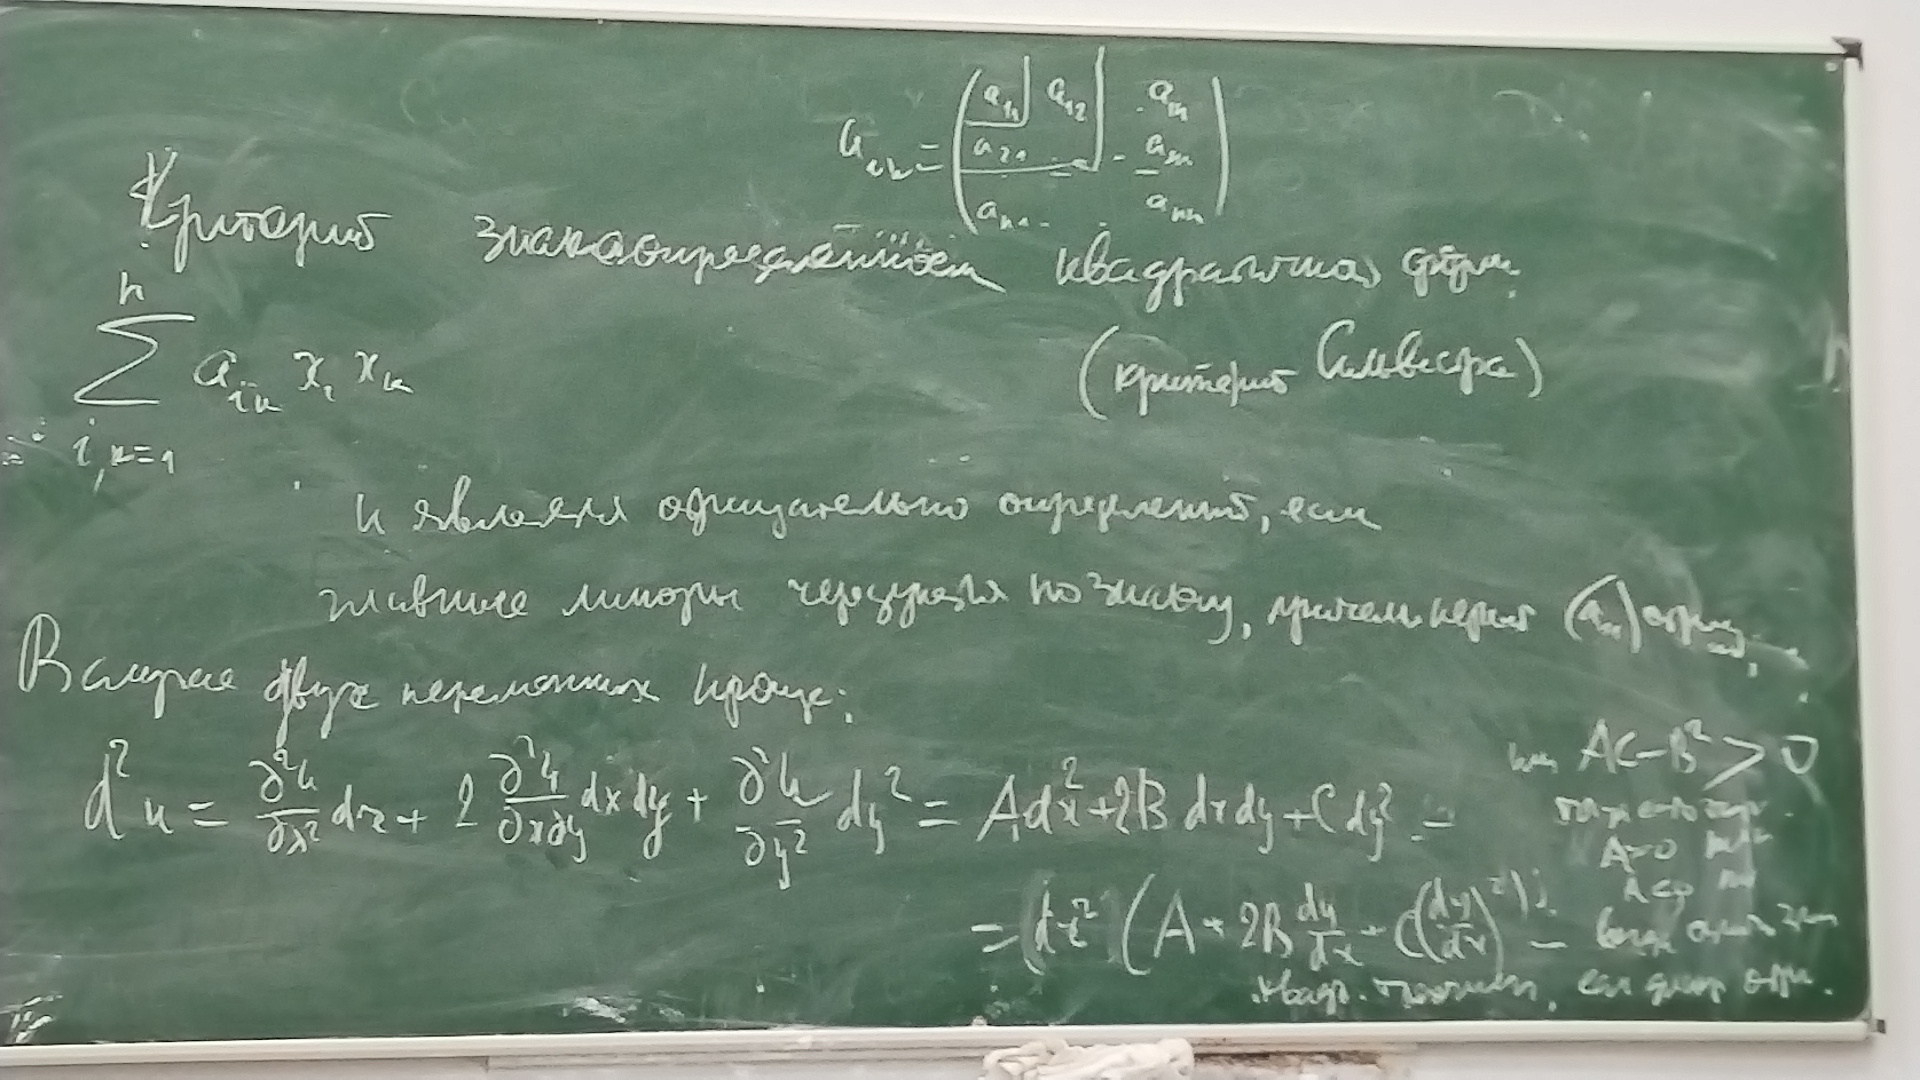 a_{ik} = ( a_{11} a_{12} . a_{1n}
a_{21} .. - a_{2n}
a_{n1} .. a_{nn} )
Критерий знакоопределённости квадратичных форм.
n
∑ a_{ik} x_i x_k (критерий Сильвестра)
i,k=1
и является отрицательно определенной, если
главные миноры чередуются по знаку, причем первый (a_{11}) отриц.
В случае двух переменных проще:
d²u = ∂²u/∂x² dx² + 2 ∂²u/∂x∂y dxdy + ∂²u/∂y² dy² = Adx² + 2B dxdy + C dy² =
AC - B² > 0
A>0
A<0
= dx² (A + 2B dy/dx + C(dy/dx)²) -
квадр. трехчлен, если дискр отр.